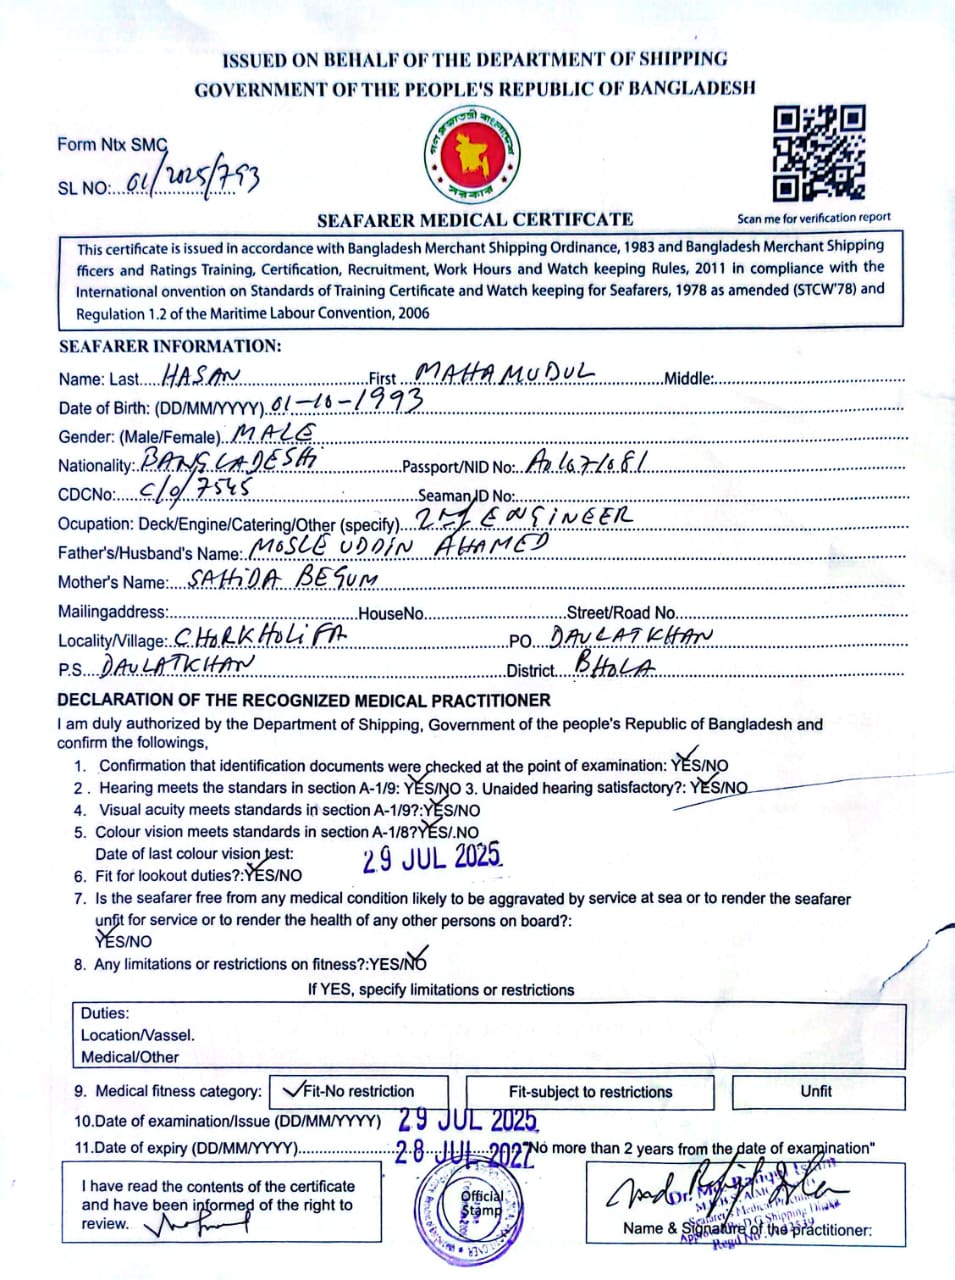 ISSUED ON BEHALF OF THE DEPARTMENT OF SHIPPING
GOVERNMENT OF THE PEOPLE'S REPUBLIC OF BANGLADESH
Form Ntx SMC
SL NO:...01/2025/793
গণপ্রজাতন্ত্রী বাংলাদেশ
সরকার
Scan me for verification report
SEAFARER MEDICAL CERTIFCATE
This certificate is issued in accordance with Bangladesh Merchant Shipping Ordinance, 1983 and Bangladesh Merchant Shipping
fficers and Ratings Training, Certification, Recruitment, Work Hours and Watch keeping Rules, 2011 in compliance with the
International onvention on Standards of Training Certificate and Watch keeping for Seafarers, 1978 as amended (STCW'78) and
Regulation 1.2 of the Maritime Labour Convention, 2006
SEAFARER INFORMATION:
Name: Last....HASAN....First...MAHAMUDUL....Middle:
Date of Birth: (DD/MM/YYYY) 01-10-1993
Gender: (Male/Female)..MALE
Nationality:..BANGLADESHi....Passport/NID No:..A01671081
CDCNo:....C/O/7545....SeamanID No:
Ocupation: Deck/Engine/Catering/Other (specify)...2nd ENGiNEER
Father's/Husband's Name:..MOSLE UDDiN AHAMED
Mother's Name:...SAHiDA BEGUM
Mailingaddress:....HouseNo....Street/Road No.
Locality/Village:..CHORKHOLiFA....PO..DAULATKHAN
P.S...DAULATKHAN....District...BHOLA
DECLARATION OF THE RECOGNIZED MEDICAL PRACTITIONER
I am duly authorized by the Department of Shipping, Government of the people's Republic of Bangladesh and
confirm the followings,
1. Confirmation that identification documents were checked at the point of examination: YES/NO
2 . Hearing meets the standars in section A-1/9: YES/NO 3. Unaided hearing satisfactory?: YES/NO
4. Visual acuity meets standards in section A-1/9?:YES/NO
5. Colour vision meets standards in section A-1/8?YES/.NO
Date of last colour vision test: 29 JUL 2025
6. Fit for lookout duties?:YES/NO
7. Is the seafarer free from any medical condition likely to be aggravated by service at sea or to render the seafarer
unfit for service or to render the health of any other persons on board?:
YES/NO
8. Any limitations or restrictions on fitness?:YES/NO
If YES, specify limitations or restrictions
Duties:
Location/Vassel.
Medical/Other
9. Medical fitness category: Fit-No restriction Fit-subject to restrictions Unfit
10.Date of examination/Issue (DD/MM/YYYY) 29 JUL 2025
11.Date of expiry (DD/MM/YYYY)....28 JUL 2027 "No more than 2 years from the date of examination"
I have read the contents of the certificate
and have been informed of the right to
review.
Official
Stamp
Dr. Md. Rafiqul Islam
Name & Signature of the practitioner: